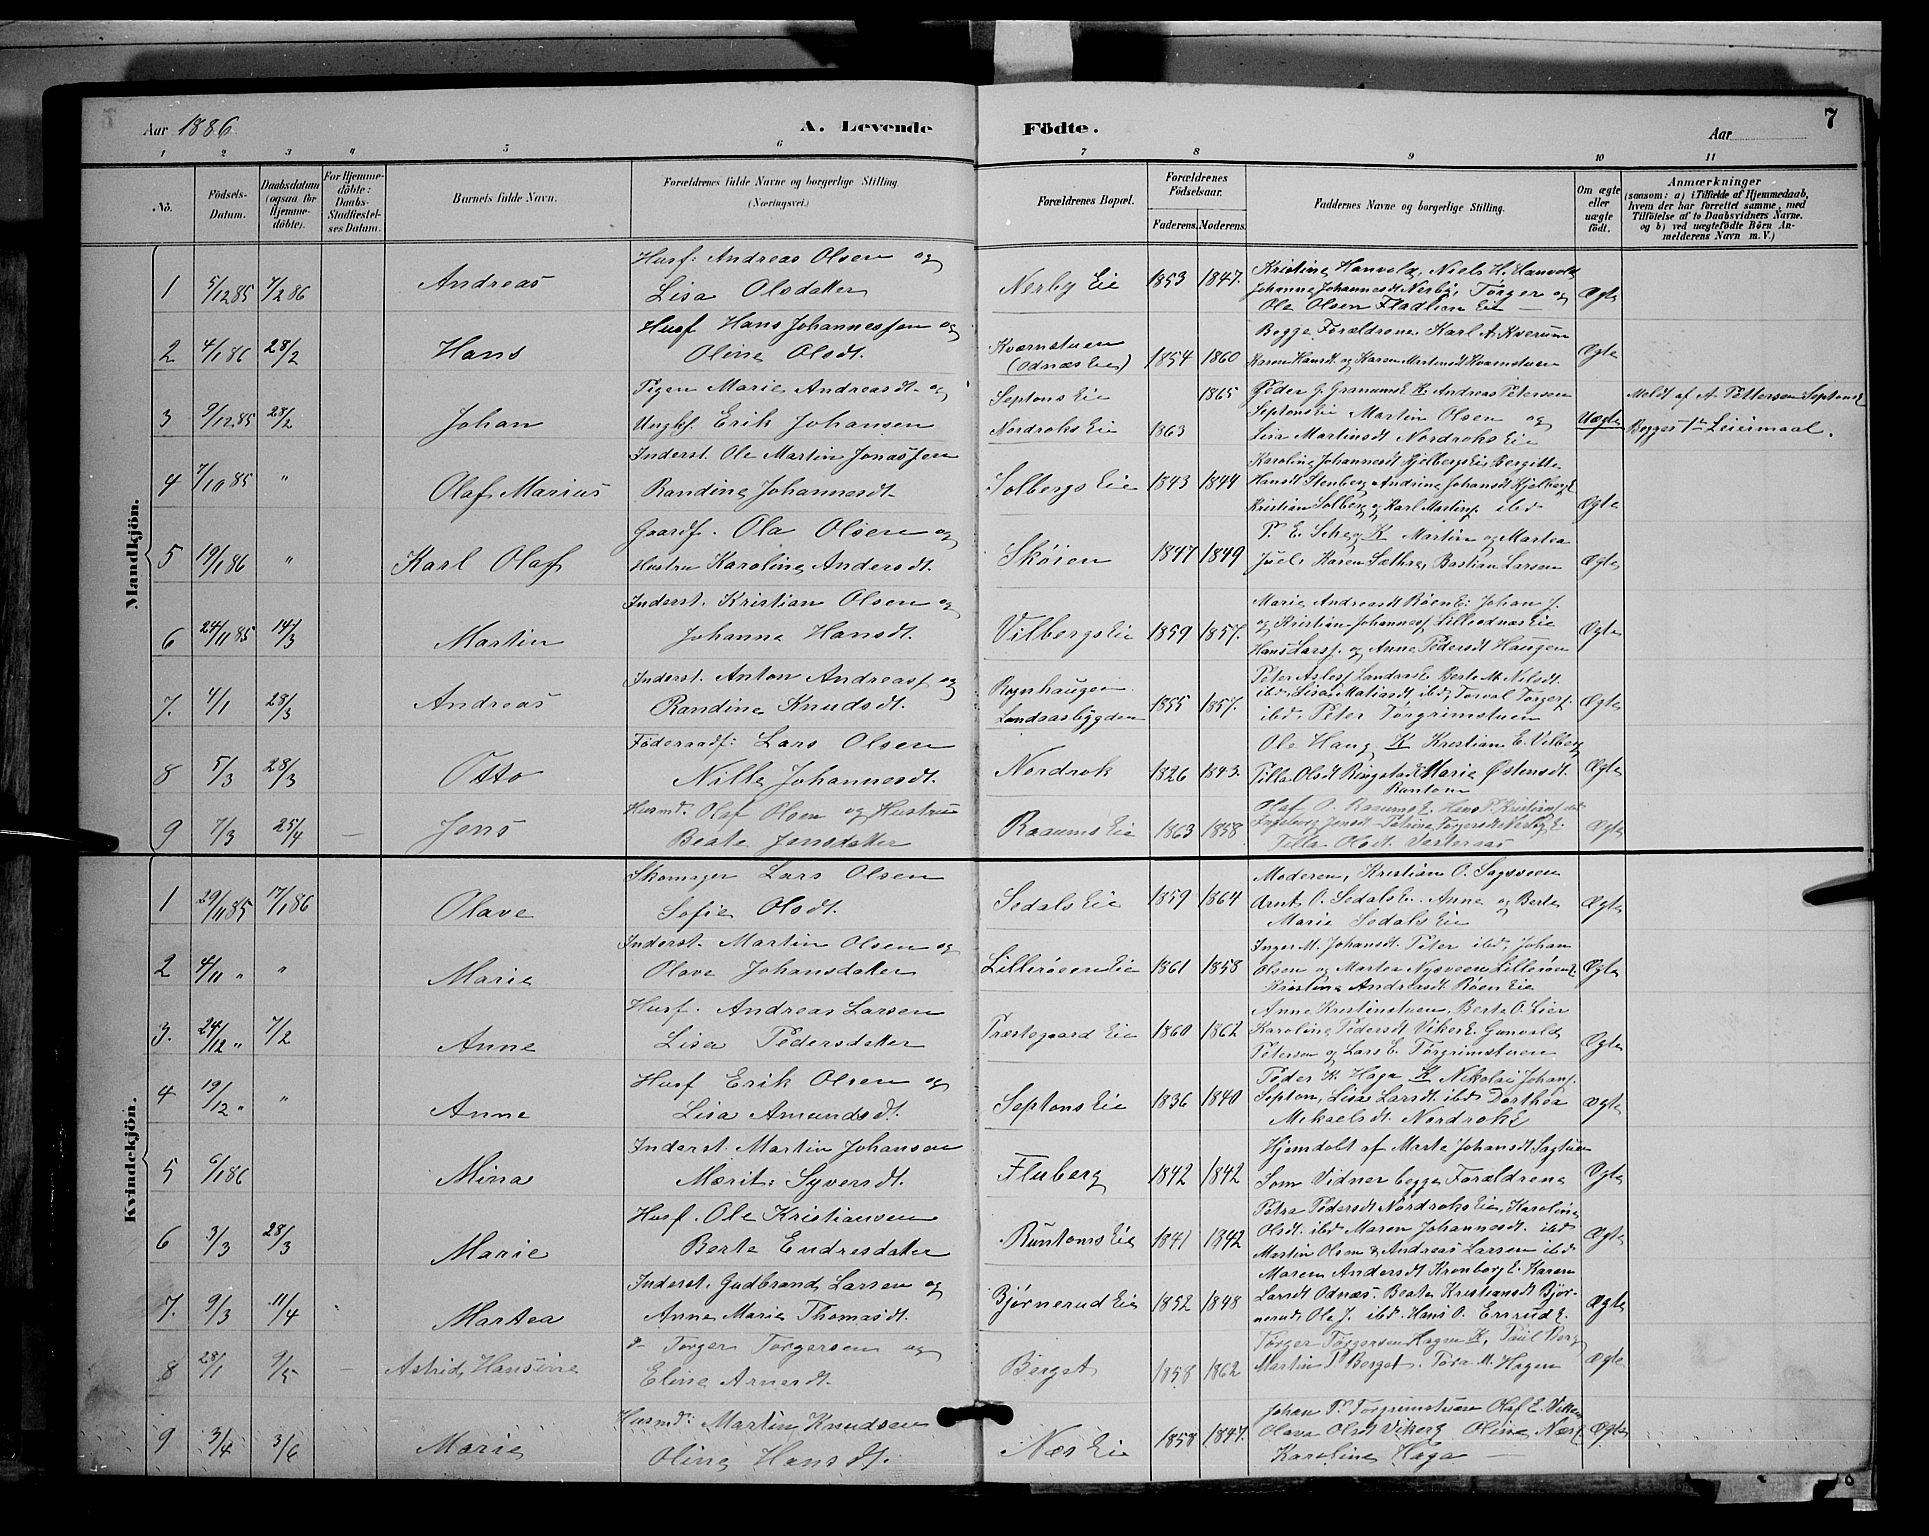 Aar 1886
A. Levende Födte.
Aar
7
1 2 3 4 5 6 7 8 9 10 11
No.
Födsels-Datum.
Daabsdatum (ogsaa for Hjemmedöbte).
For Hjemmedöbte: Daabs-Stadfæstelses Datum.
Barnets fulde Navn.
Forældrenes fulde Navne og borgerlige Stilling (Næringsvei.)
Forældrenes Bopæl.
Forældrenes Födselsaar.
Faderens. Moderens.
Faddernes Navne og borgerlige Stilling.
Om ægte eller uægte født.
Anmærkninger
(saasom: a) i Tilfælde af Hjemmedaab,
hvem der har forrettet samme, med
Tilföielse af to Daabsvidners Navne.
og b) ved uægtefödte Börn An-
melderens Navn m. V.)
Mandkjön.
1 5/12 85 7/2 86 Andreas
Husf: Andreas Olsen og
Lisa Olsdatter
Nerby Eie 1853 1847.
Kristine Hanvold, Niels H. Hanvold
Johanne Johannesdt Nerby, Torger og
Ole Olsen Fladlien Eie
Ægte
2 4/1 86 28/2 Hans
Husf Hans Johannessen og
Oline Olsdt.
Kværnstuen
(Odnæs Eie) 1854 1860
Begge Forældrene Karl A. Kverum
Karen Hansdt. og Karen Martinsdt Kværnstuen
Ægte
3 9/12 85 28/2 Johan
Pigen Marie Andreasdt. og
Ungkf. Erik Johansen
Septons Eie 1865
Nordroks Eie 1863
Peder J. Granums E. K. Andreas Petersen
Septons Eie Martin Olsen og
Lisa Martinsdt Nordroks Eie
Uægte
Meldt af A. Pettersen Septons E
Begges 1ste Leiermaal.
4 7/10 85 " Olaf Marius
Inderst. Ole Martin Jonassen
Randine Johannesdt.
Solbergs Eie 1843 1844
Karoline Johannesdt Hjelbergs Eie Bergitte
Hansdt Stenberg Andrine Johansdt Hjelberg E
Kristian Solberg og Karl Martinsf. ibd
Ægte
5 19/1 86 " Karl Olaf
Gaardf. Ola Olsen og
Hustru Karoline Andersdt.
Skøien 1847 1849
P. E. Sehe K Martin og Martea
Juel, Karen Sæthre, Bastian Larsen
Ægte
6 24/11 85 14/3 Martin
Inderst. Kristian Olsen og
Johanne Hansdt.
Vilbergs Eie 1859 1857.
Marie Andreasdt Røen E: Johan J.
og Kristian Johannesf Lilleodnæs Eie
Hans Larsf. og Anne Pedersdt Haugen
Ægte
7. 4/1 28/3 Andreas
Inderst. Anton Andreasf og
Randine Knudsdt.
Røgnhaugen
Landaasbygden 1855 1857.
Peter Aslesf Landaas E Berte M. Nelsdt.
ibd, Lisa Matiasdt ibd, Torval Torgerf.
ibd, Peter Torgrimstuen
Ægte
8 5/3 28/3 Otto
Føderaadf: Lars Olsen
Nille Johannesdt.
Nordrok 1826 1843.
Ole Haug K Kristian E. Vilberg
Pille Olsdt Ringstad Marie Østensdt.
Runtom
Ægte
9 7/3 25/4 Jens
Husmd. Olaf Olsen og Hustru
Beate Jensdatter
Raaums Eie 1863 1858
Olaf O. Raaums E. Hans P. Kristiansf ibd
Ingeborg Jensdt. Petrine Torgersdt Nerby E.
Pilla Olsdt. Vesteraas
Ægte
Kvindekjön.
1 29/11 85 17/1 86 Olave
Skomager Lars Olsen
Sofie Olsdt.
Sedals Eie 1859 1864
Moderen, Kristian O. Sagsveen
Arnt O. Sedals E. Anne og Berte
Marie Sedals Eie
Ægte
2 4/11 " " Marie
Inderst. Martin Olsen og
Olave Johansdatter
Lillerøen Eie 1861 1858
Inger M. Johansdt. Peter ibd, Johan
Olsen og Marte Nysveen Lillerøen E
Kristine Andersdt. Røen Eie
Ægte
3. 24/12 " 7/2 Anne
Husf. Andreas Larsen
Lisa Pedersdatter
Præstegaard Eie 1860 1862
Anne Kristinstuen, Berte O. Lier
Karoline Pedersdt Viker E. Gunvald
Petersen og Lars E. Torgrimstuen
Ægte
4 19/12 " " Anne
Husf Erik Olsen og
Lisa Amundsdt.
Septons Eie 1836 1840
Peder K. Haga K Nikolai Johansf.
Septon, Lisa Larsdt ibd Dorthea
Mikaelsdt. Nordroks E
Ægte
5 6/1 86 Mina
Inderst. Martin Johansen
Marit Syversdt.
Fluberg 1842 1842
Hjemdøbt af Marte Johansdt Sagstuen
Som Vidner begge Forældrene
Ægte
6 3/3 28/3 Marie
Husf. Ole Kristiansen
Berte Endresdatter
Runtoms Eie 1841 1842
Petra Pedersdt Nordroks Eie, Karoline
Olsdt. ibd Maren Johannesdt. ibd
Martin Olsen & Andreas Larsen ibd
Ægte
7. 9/3 11/4 Martea
Inderst. Gudbrand Larsen og
Anne Marie Thomasdt.
Bjørnerud Eie 1852 1848
Maren Andersdt Kronborg E. Karen
Larsdt Odnæs. Beate Kristiansdt Bjør-
nerud, Ole J. ibd. Hans O. Ersrud E.
Ægte
8 28/1 9/5 Astrid Hansine
Torger Torgersen og
Eline Arnesdt.
Berget 1858 1862
Torger Torgersen Hagen K, Paul Berg
Martin P Berget. Tora M. Hagen
Ægte
9 3/4 3/6 Marie
Husmd: Martin Knudsen
Oline Hansdt.
Næs Eie 1858 1847.
Johan P Torgrimstuen Olof E. Viken
Olava Olsdt Viker E Oline Næs E
Karoline Haga
Ægte